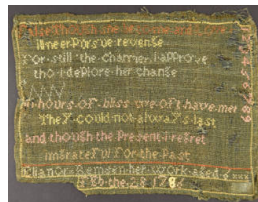 False though she be to me and love
ill neer Pursue revenge
For still the charmer I approve
tho i deplore her change
in hours of bliss we oft have met
They could not always last
and though the Present i regret
im Gratefull For the Past
Elianor her work aged
Feb the 28 178